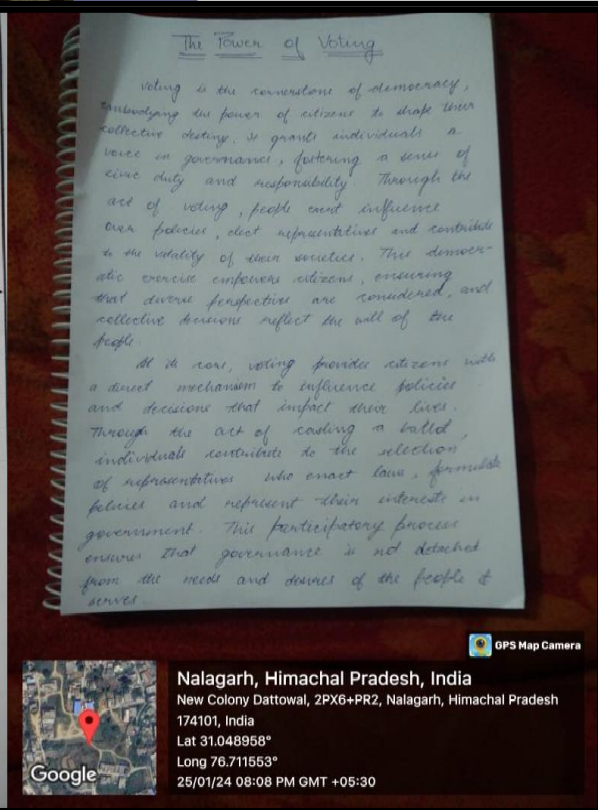 The Power of Voting
Voting is the cornerstone of democracy,
embodying the power of citizens to shape their
collective destiny. It grants individuals a
voice in governance, fostering a sense of
civic duty and responsibility. Through the
act of voting, people exert influence
over policies, elect representatives and contribute
to the vitality of their societies. This democr-
atic exercise empowers citizens, ensuring
that diverse perspective are considered, and
collective decisions reflect the will of the
people.
At its core, voting provides citizens with
a direct mechanism to influence policies
and decisions that impact their lives.
Through the act of casting a ballot,
individuals contribute to the selection
of representatives who enact laws, formulate
policies and represent their interests in
government. This participatory process
ensures that governance is not detached
from the needs and desires of the people it
serves
GPS Map Camera
Nalagarh, Himachal Pradesh, India
New Colony Dattowal, 2PX6+PR2, Nalagarh, Himachal Pradesh
174101, India
Lat 31.048958°
Long 76.711553°
25/01/24 08:08 PM GMT +05:30
Google